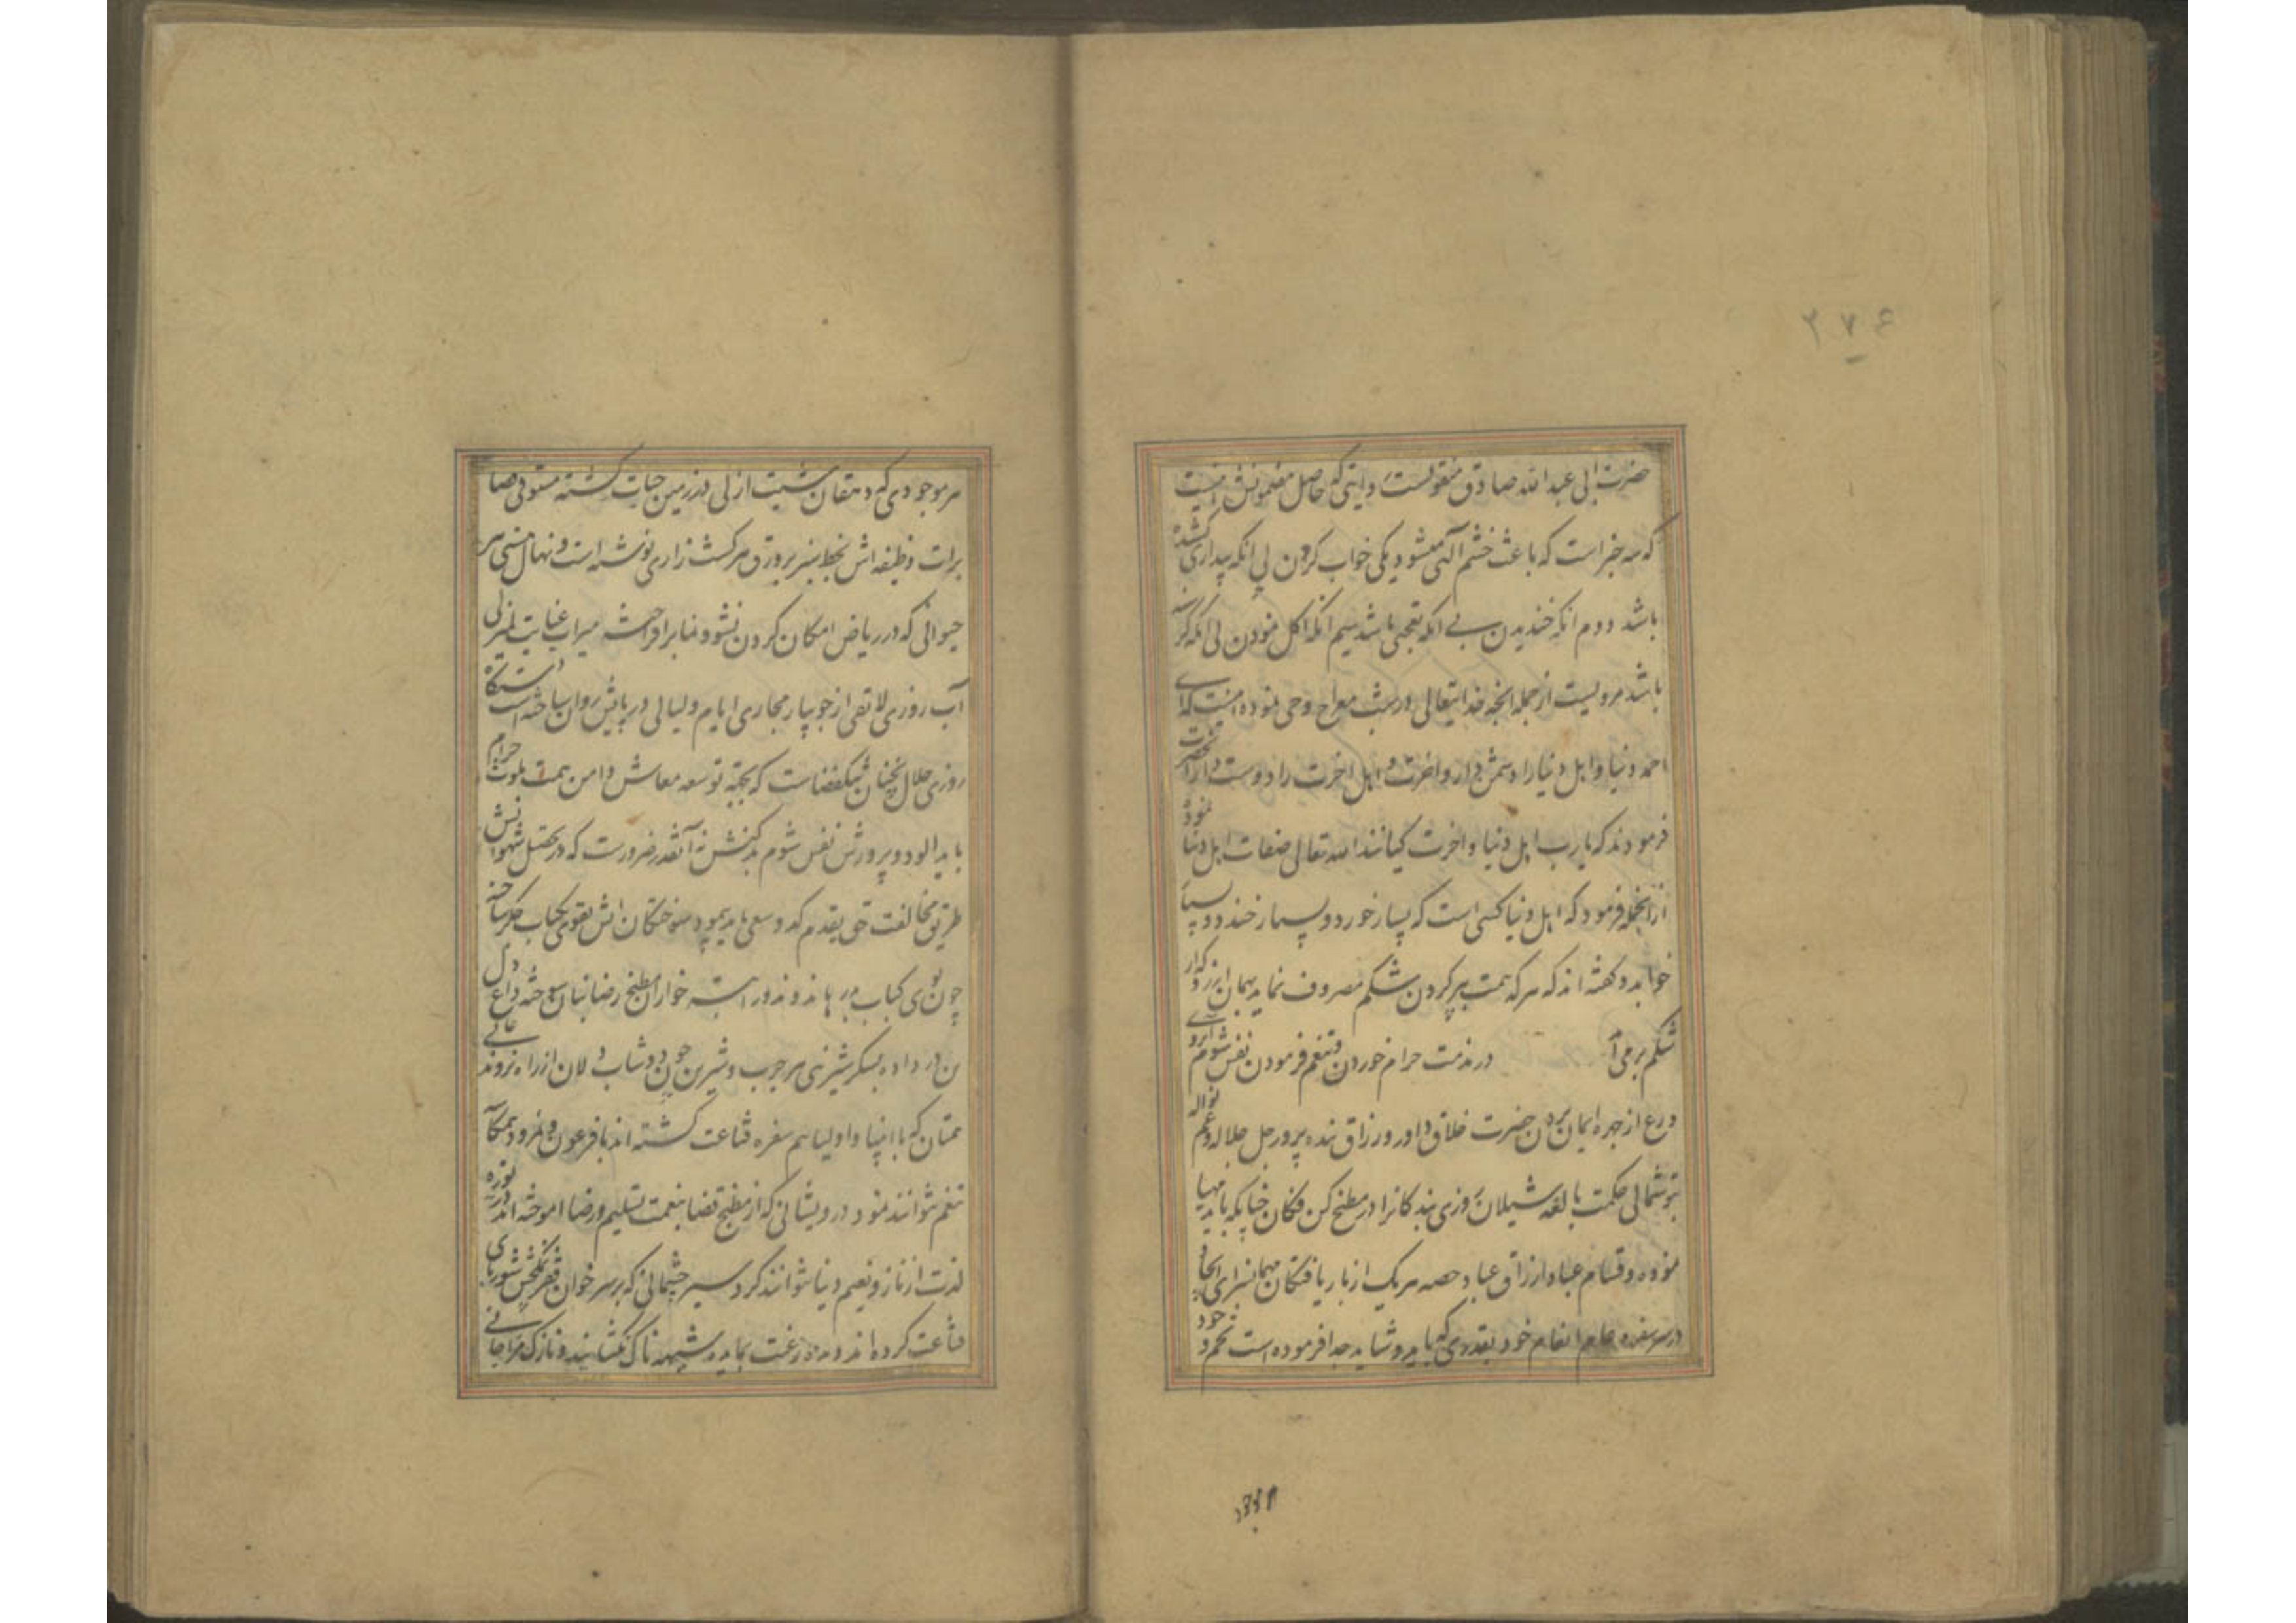 ۲۷۶
حضرت ابی عبدالله صادق منقولست روایتی که حاصل مضمونش اینست
که سه چیز است که باعث خشم الهی میشود یکی خواب کردن بی انکه بیداری کشیده
باشد دوم انکه خندیدن بی انکه تعجبی باشد سیم انکه اکل نمودن بی انکه گرسنه
باشد مرویست از جمله انچه خدایتعالی در شب معراج وحی نموده اینست که ای
احمد دنیا و اهل دنیا را دشمن دار و اخرت و اهل اخرت را دوست دار انحضرت
فرمودند که یا رب اهل دنیا و اخرت کیانند الله تعالی صفات اهل دنیا نموده
ازانجمله فرمود که اهل دنیا کسی است که بسیار خورد و بسیار خندد و بسیار
خوابد و گفته اند که هر که همت بر پر کردن شکم مصروف نماید بهمان ارزد که از
شکم برمی آید در مذمت حرام خوردن و تنعم فرمودن نفس شوم ابروی
ورع از چهره ایمان بردن حضرت خلاق داور و رزاق بنده پرور جل جلاله و عم نواله
توشمالی حکمت بالغه شیلان روزی بندکانرا در مطبخ کن فکان چنانکه باید مهیا
نموده و قسام عباد ارزاق عباد حصه هر یک از باریافتکان مهمانسرای ایجاد
در سر سفره عام انعام خود بقدری که باید و شاید جدا فرموده است تخم وجود
هر موجودی که دهقان مشیت ازلی در زمین حیات کشته مستوفی قضا
برات وظیفه اش بخط سبز بر ورق هر کشت زاری نوشته است و نهال هستی هر
حیوانی که در ریاض امکان کردن نشو و نما برافراخته میراب عنایت لم یزلی
آب روزی لایقی از جویبار مجاری ایام و لیالی در پایش روان ساخته است دستگاه
روزی حلال نچنان تنک فضاست که بجهة توسعه معاش دامن همت بلوث حرام
باید الود و پرورش نفس شوم نه آنقدر ضرورست که در تحصیل شهواتش
طریق مخالفت حق بقدم کد و سعی باید پیمود سوختکان اتش تقوی کباب جکر ساخته
چون بوی کباب دل خواران مطبخ رضا بنان سوخته داغ
تن در داده بسکر شیرینی هر چرب و شیرین چون دوشاب دلان از راه نروند عالی
همتان که با انبیا و اولیا هم سفره قناعت کشته اند با فرعون و نمرود همکاسه
تنعم نتوانند نمود درویشانی که از مطبخ قضا بنعمت تسلیم و رضا اموخته اند
لذت از ناز و نعیم دنیا نتوانند کرد سیرچشمانی که بر سر خوان فقر
قناعت کرده اند دندان رغبت بمایده شبهه ناک نکشایند و نازک مزاجانی